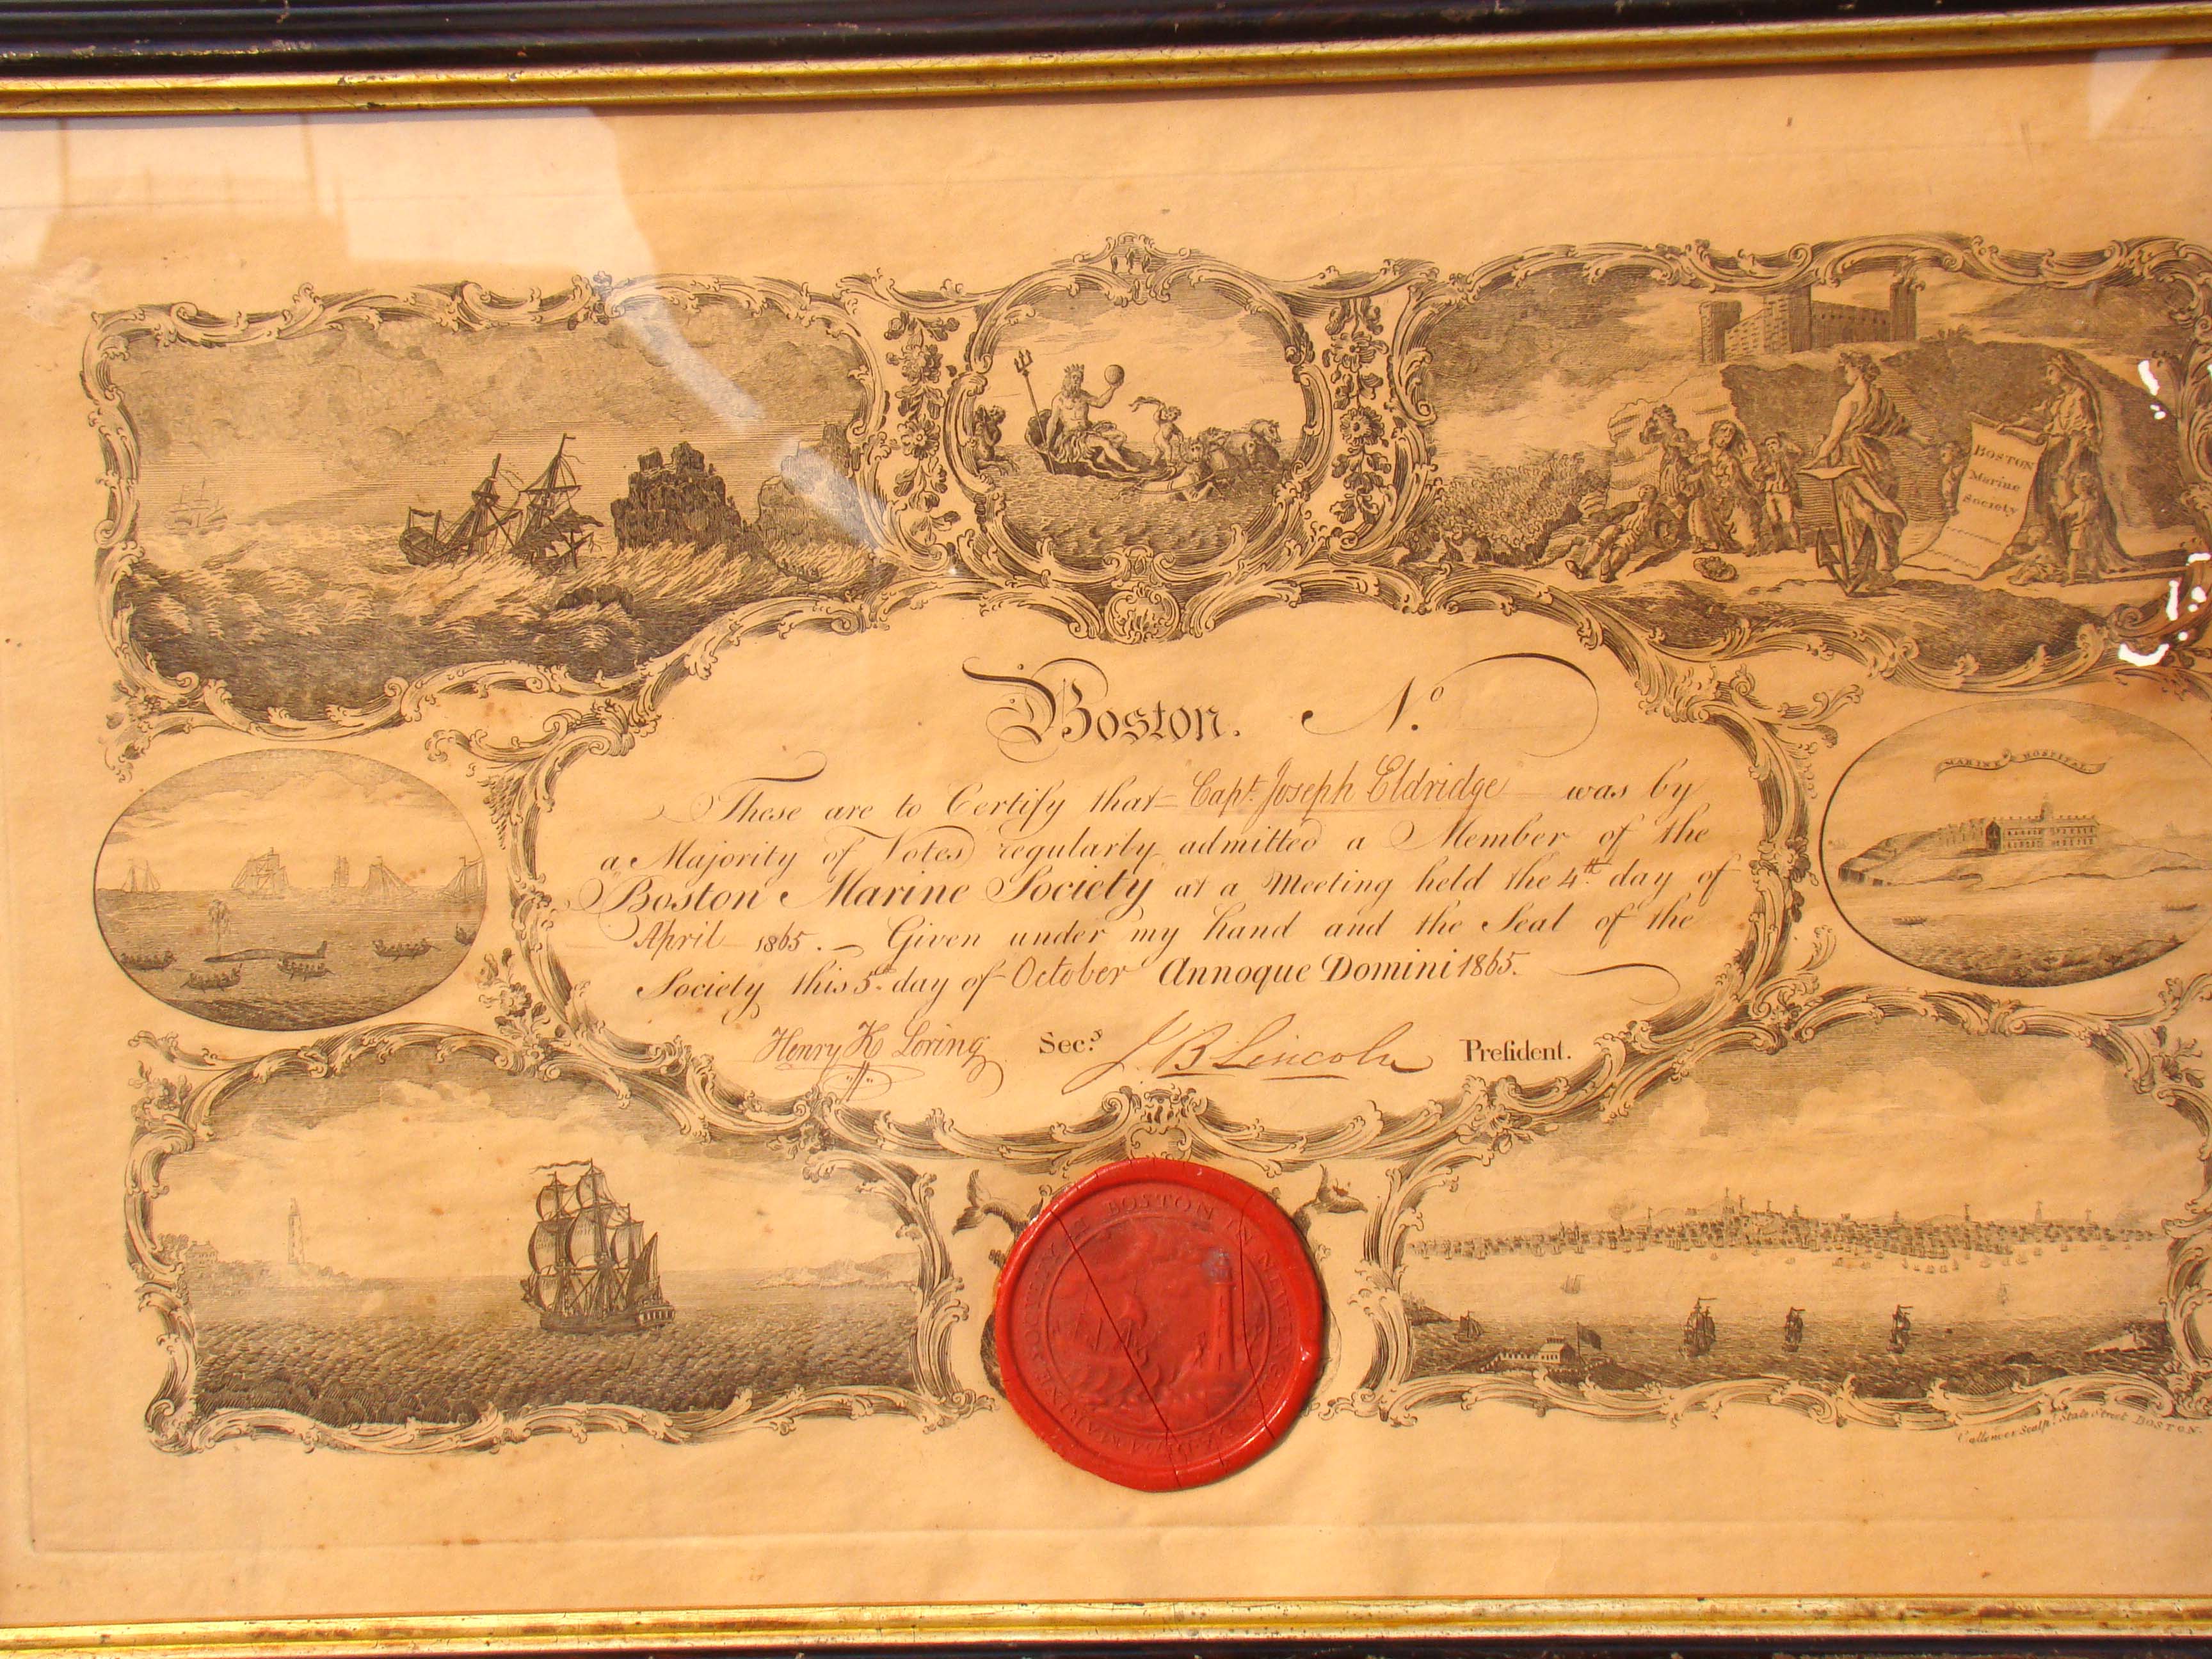 BOSTON
Marine
Society
Boston. N.º
MARINE HOSPITAL
These are to Certify that Capt. Joseph Eldridge was by
a Majority of Votes regularly admitted a Member of the
Boston Marine Society at a Meeting held the 4th day of
April 1865. Given under my hand and the Seal of the
Society this 5th day of October Annoque Domini 1865.
Henry K Loring Sec.y J. B Lincoln Preſident.
MARINE SOCIETY AT BOSTON IN NEW ENG
Callender Sculpt. State Street BOSTON.